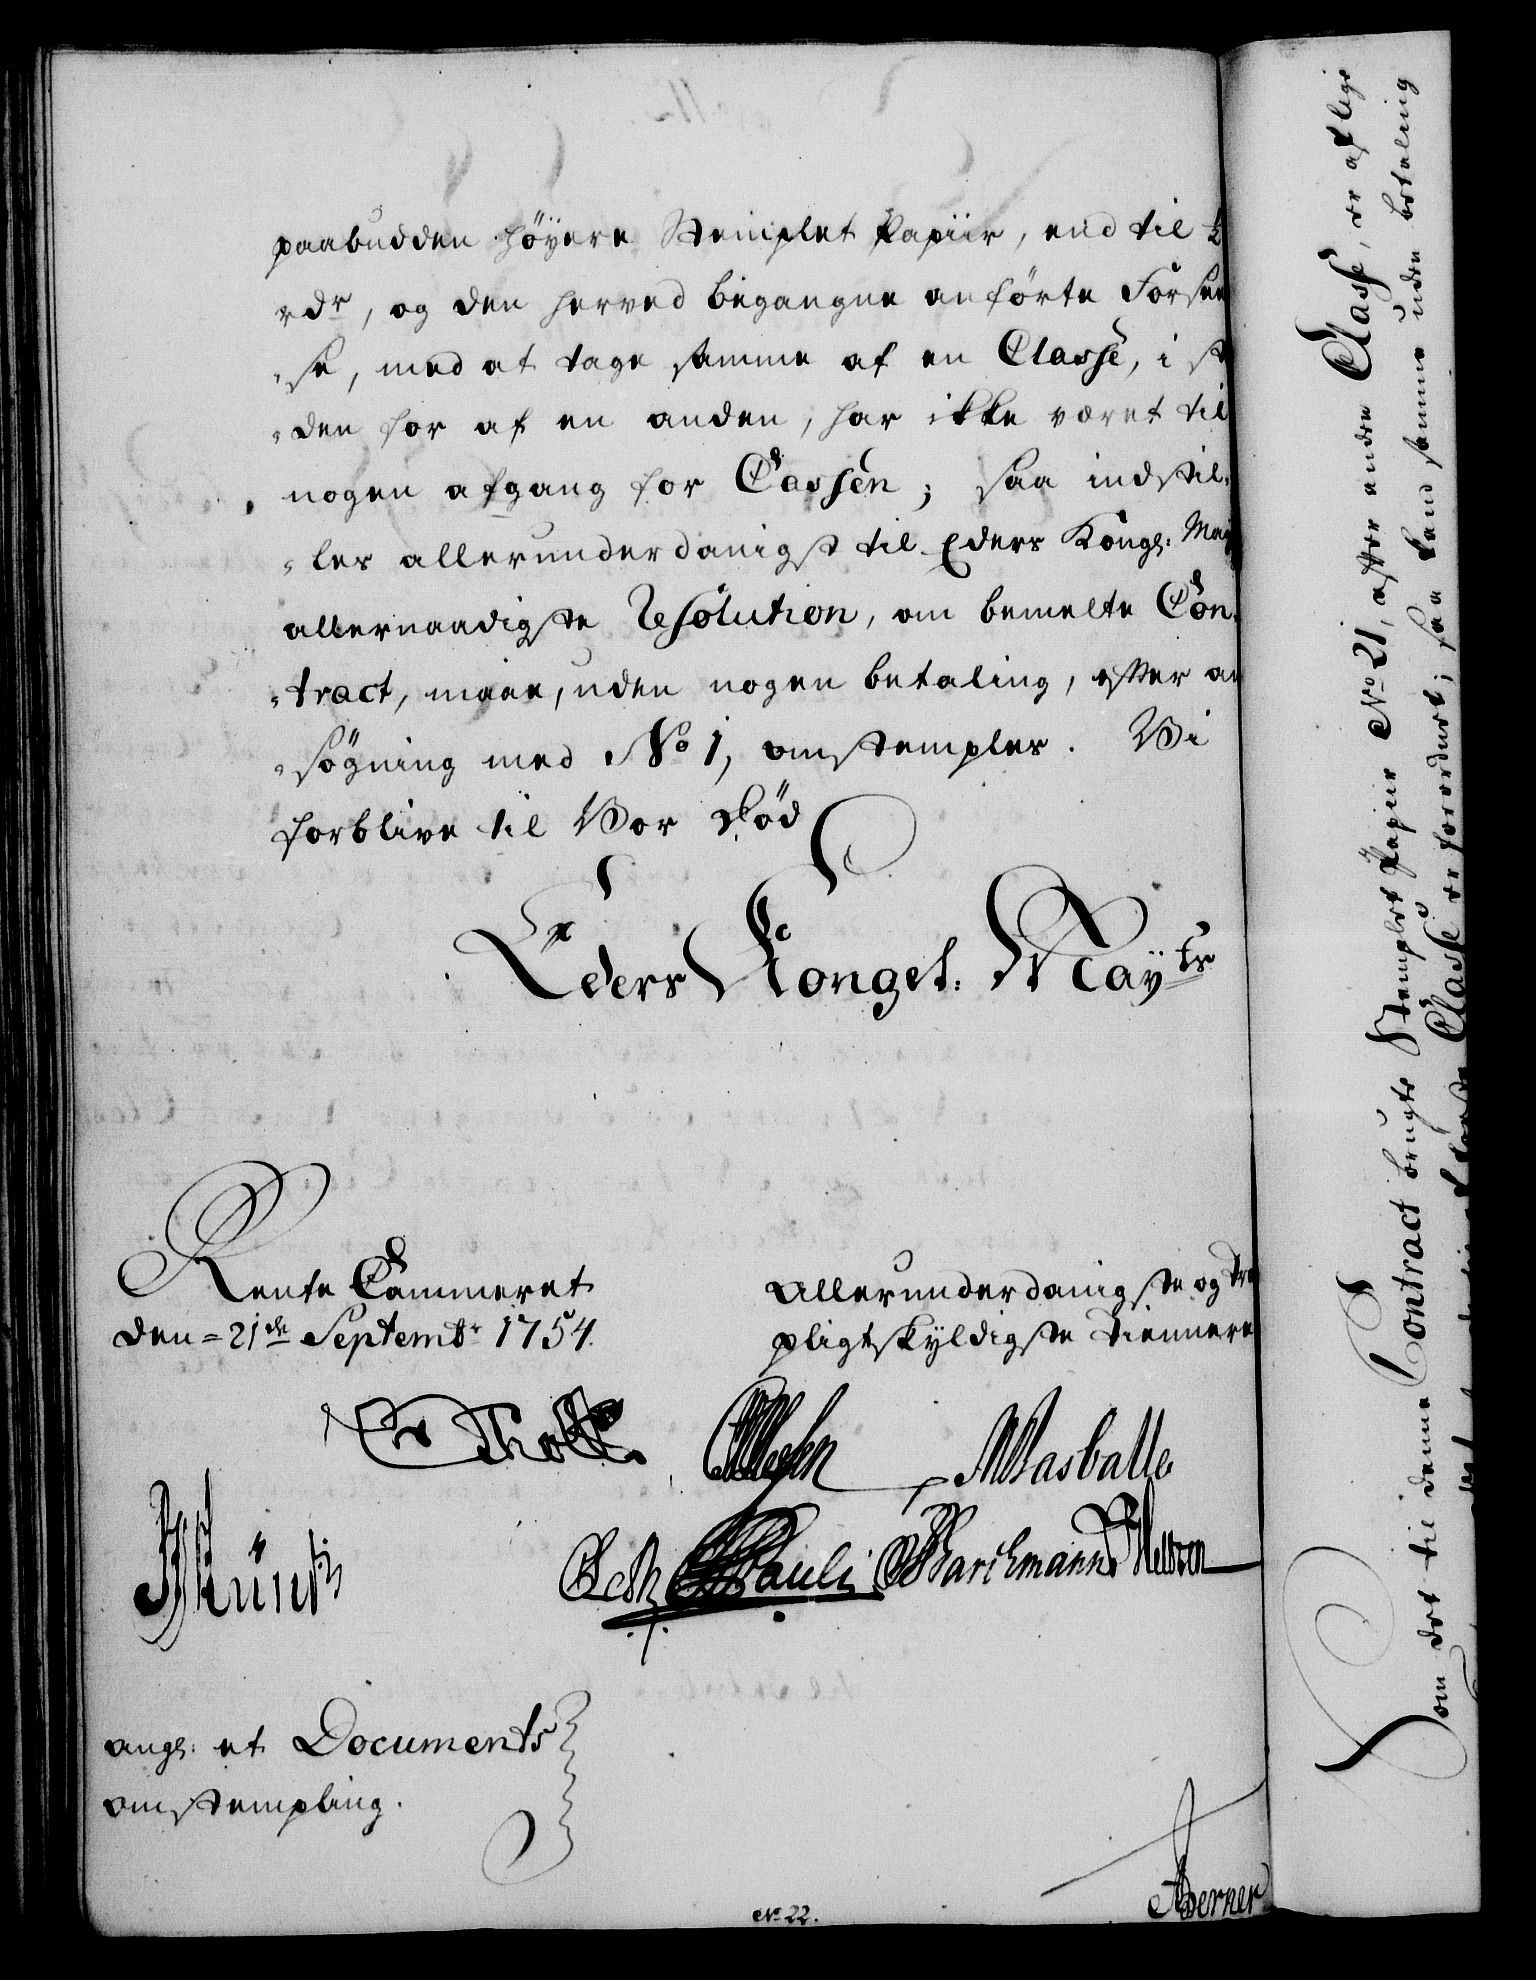 paabudden höyere Stemplet Papiir, end til
rdr, og den herved begangne anförte Forseel
„se, med at tage samme af en Classe, i ste
„den for af en anden, har ikke været til
nogen afgang for Cassen; saa indstil„
„les allerunderdanigst til Eders Kongl: May
allernaadigste Resolution, om bemelte Con„
„tract, maae, uden nogen betaling, efter an
„søgning med No 1, omstemples. Vi
forblive til Vor Död
Eders Kongel: Mayts
Rente Cammeret
den = 21de Septembr 1754.
Allerunderdanigste og
pligtskyldigste Tiennere
Masballe
Pauli
angl: et Documents
omstempling.
Berner
No 22.
Som det til denne Contract brugte Stemplet Papiir No 21, efter anden Classe, er af lige
Classe er forordnet; saa kand samme uden betaling